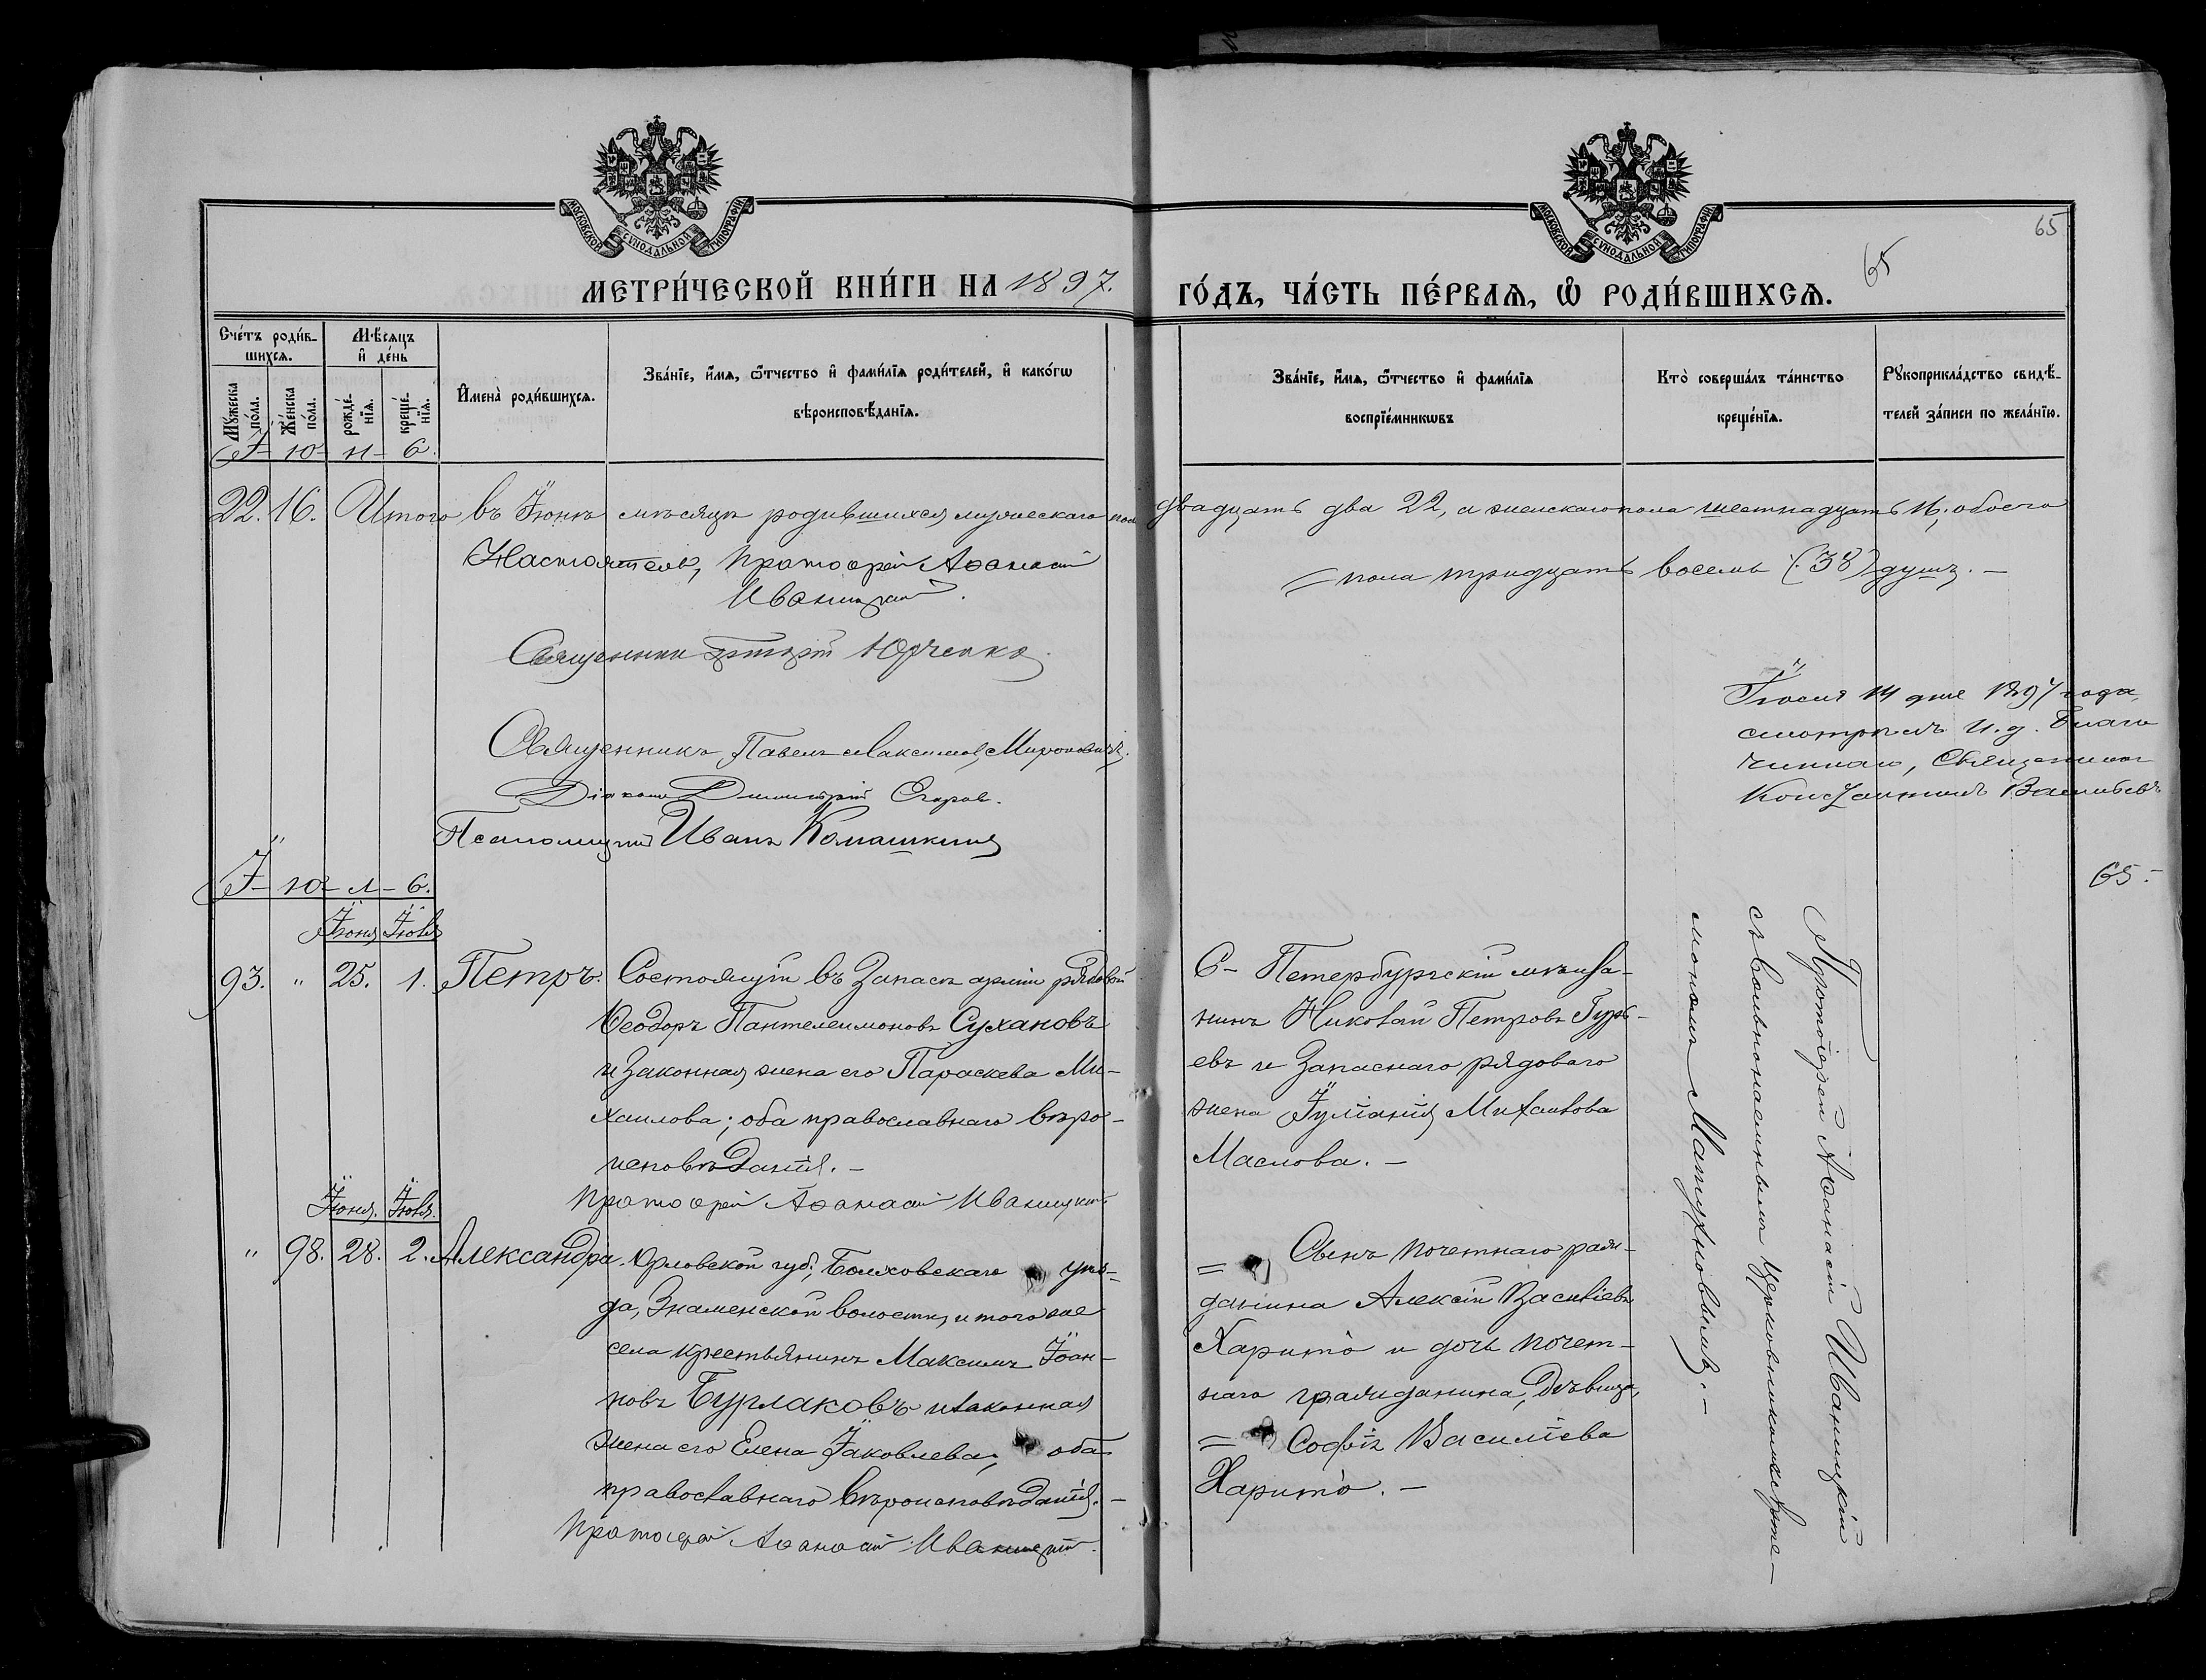 65
65
МОСКОВСКОЙ СѴНОДАЛЬНОЙ ТИПОГРАФІИ
МОСКОВСКОЙ СѴНОДАЛЬНОЙ ТИПОГРАФІИ
МЕТРИ́ЧЕСКОЙ КНИ́ГИ НА 1897.
ГО́ДЪ, ЧА́СТЬ ПЕ́РВАѦ, Ѽ РОДИ́ВШИХСѦ.
Сче́тъ роди́в-
шихсѧ.
Мꙋ́жеска по́ла.
Же́нска по́ла.
Мѣ́сѧцъ
и҆ де́нь
рожде́-нїѧ.
креще́-нїѧ.
И҆мена̀ роди́вшихсѧ.
Зва́нїе, и҆́мѧ, ѻ҆́тчество и҆ фамі́лїѧ роди́телей, и҆ како́гѡ
вѣроисповѣ́данїѧ.
Зва́нїе, и҆́мѧ, ѻ҆́тчество и҆ фамі́лїѧ
воспрїе́мникѡвъ
Кто̀ соверша́лъ та́инство
креще́нїѧ.
Рꙋкоприкла́дство свидѣ́-
телей за́писи по жела́нїю.
І- ю- н- ь.
22. 16. Итого въ Іюнѣ мѣсяцѣ родившихся мужескаго пола
двадцать два 22, а женскаго пола шестнадцать 16, обоего
пола тридцать восемь (38) душъ. —
Настоятель, Протоіерей Аѳанасій
Иваницкій.
Священникъ Юрченко.
Священникъ Павелъ Максимовъ Мироновичъ.
Діаконъ Димитрій Егоров.
Псаломщикъ Иванъ Комашкинъ
Іюля 14 дня 1897 года,
смотрѣлъ И. д. Благо
чиннаго, Священникъ
Константинъ Васильевъ
65.-
І- ю- л- ь.
Іюня Іюля
93. " 25. 1. Петръ.
Состоящій въ Запасѣ арміи рядовой
Ѳеодоръ Пантелеимоновъ Сухановъ
и Законная жена его Параскева Ми-
хаилова; оба православнаго вѣро-
исповѣданія. —
Протоіерей Аѳанасій Иваницкій
С- Петербургскій мѣща-
нинъ Николай Петровъ Гурь-
евъ и Запаснаго рядоваго
жена Іуліанія Михаилова
Маслова. —
Іюня. Іюля.
" 98. 28. 2. Александра.
Орловской губ., Болховскаго уѣз-
да, Знаменской волости, и того же
села крестьянинъ Максимъ Іоан-
новъ Бурлаковъ и законная
жена его Елена Іаковлева, оба
православнаго вѣроисповѣданія. —
Протоіерей Аѳанасій Иваницкій.
Сынъ почетнаго граж-
данина Алексій Василіевъ
Харито и дочь почет-
наго гражданина, дѣвица,
Софія Василіева
Харито. —
Протоіерей Аѳанасій Иваницкій
съ вольнонаемнымъ церковникомъ
Матухновымъ. —